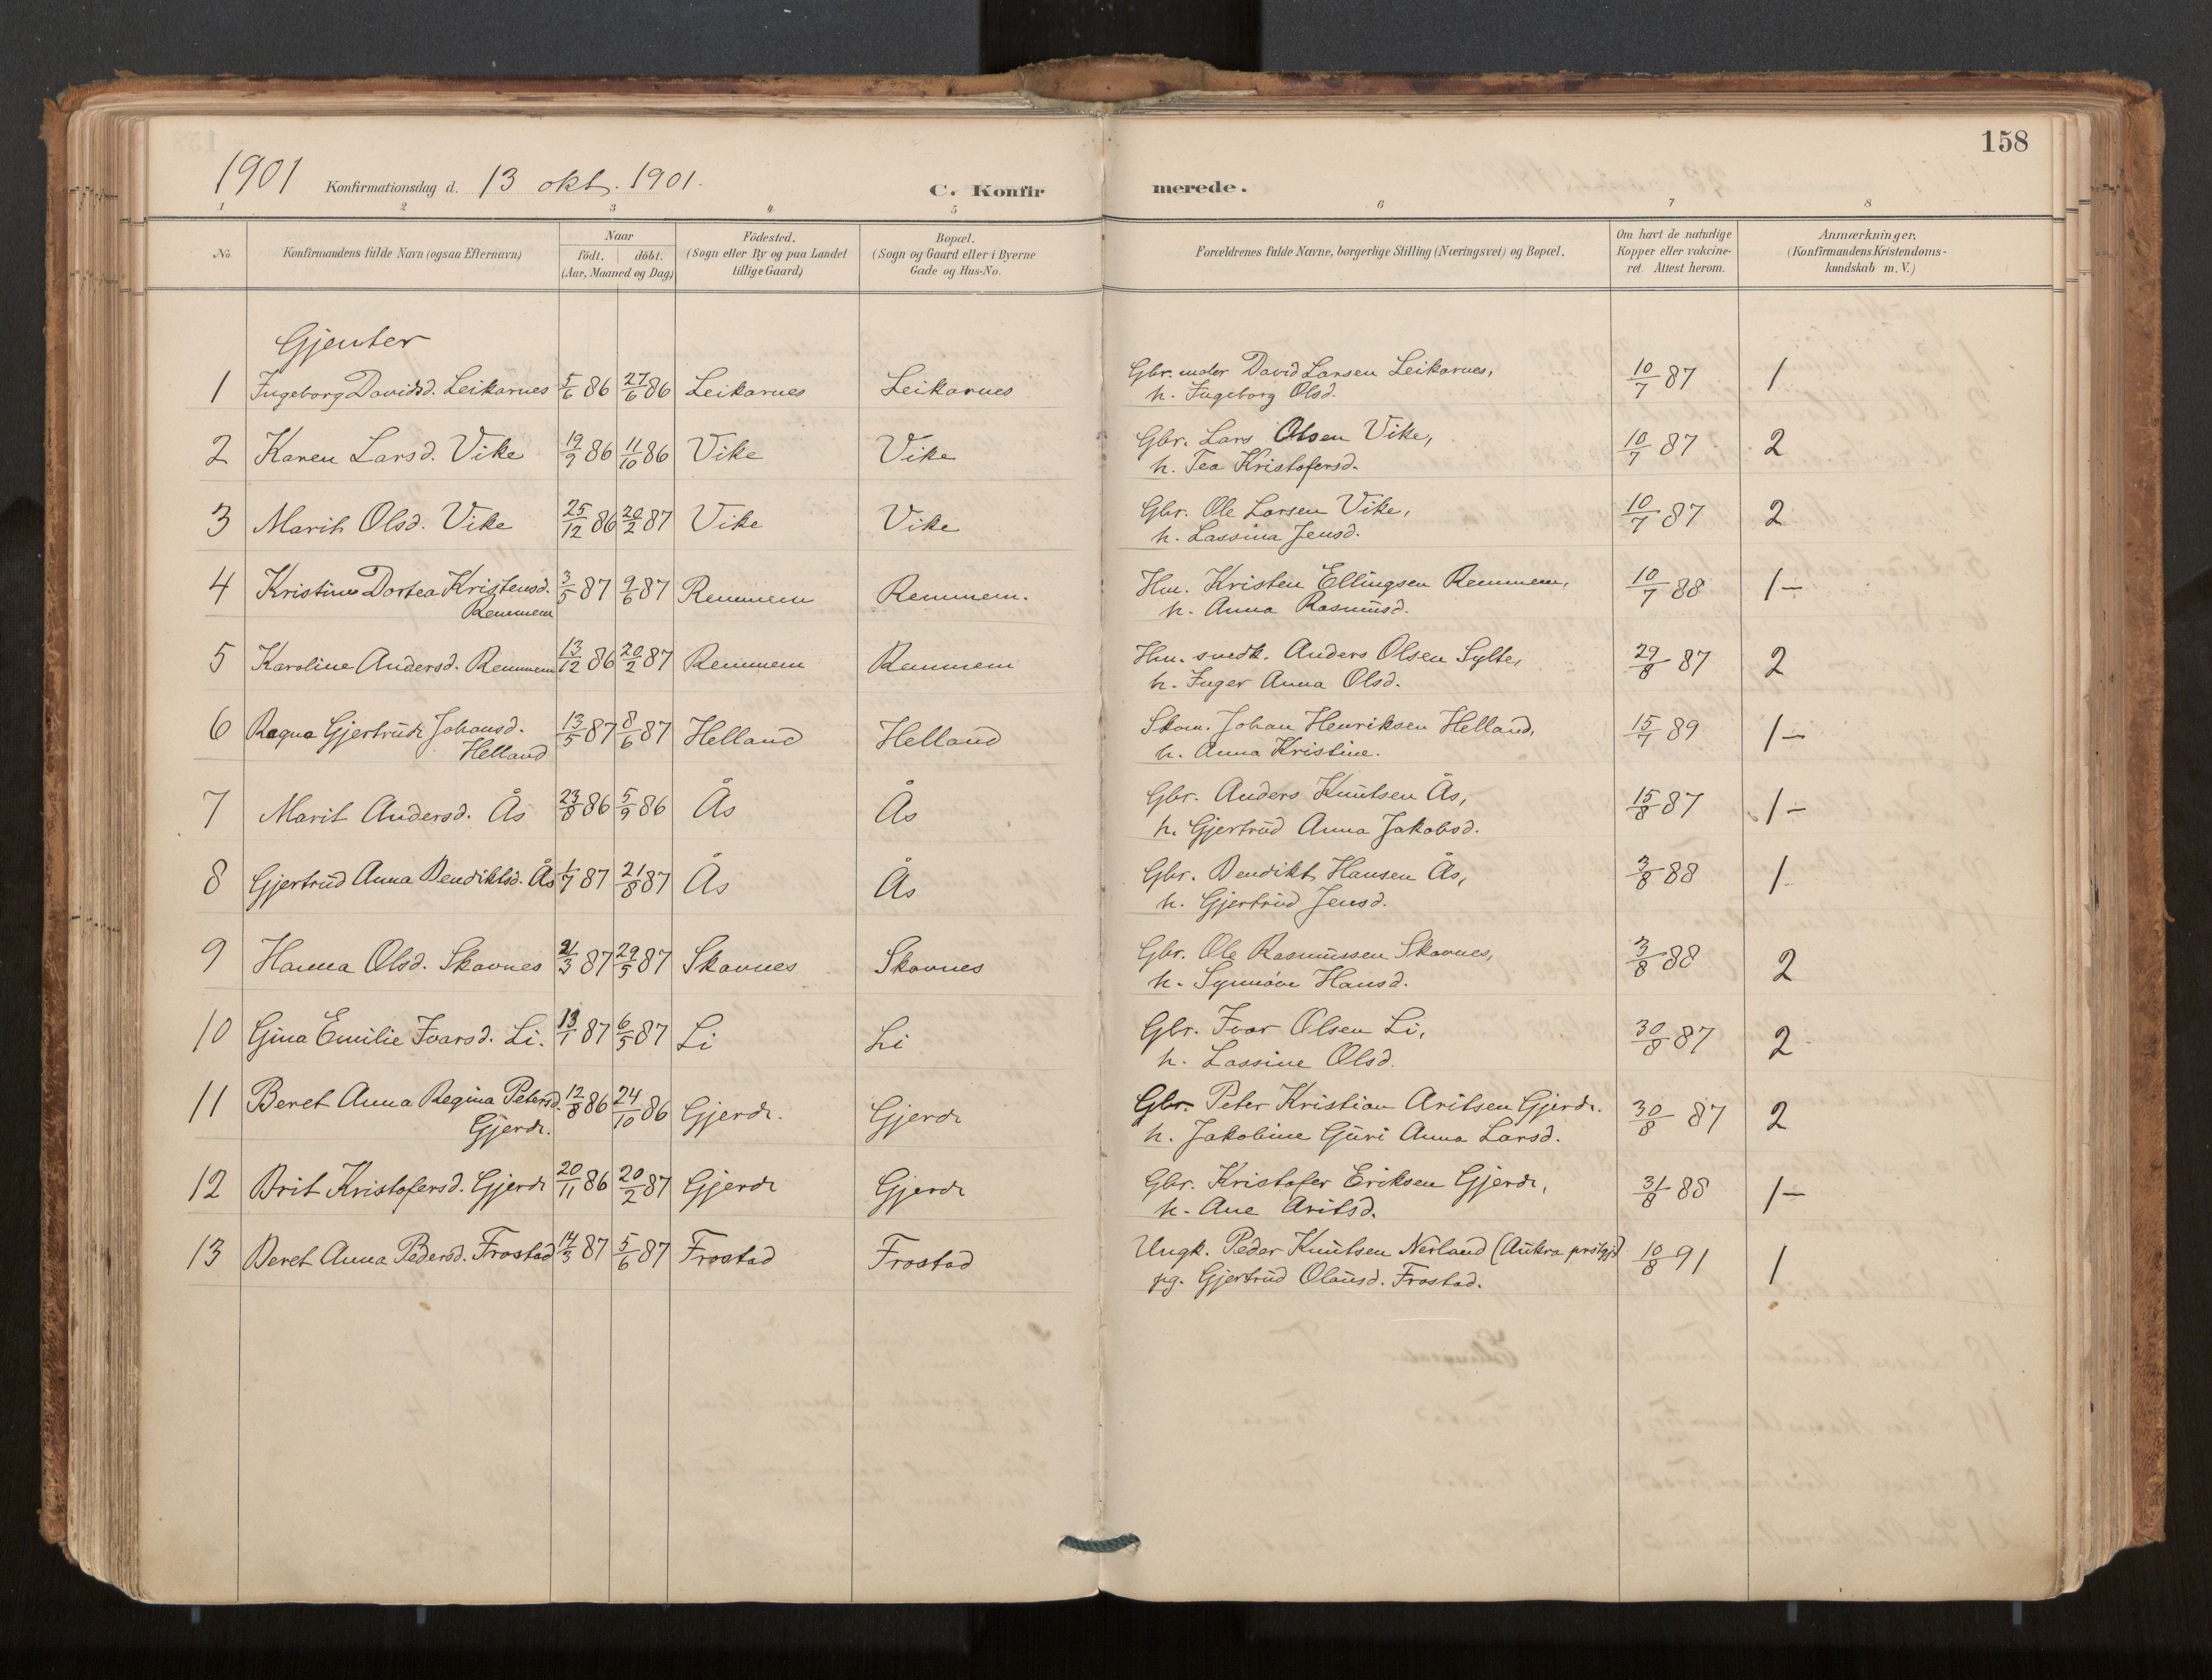 158
1901 Konfirmationsdag d. 13 okt. 1901. C. Konfirmerede.
1 2 3 4 5 6 7 8
No. Konfirmandens fulde Navn (ogsaa Efternavn) Naar födt. döbt. (Aar, Maaned og Dag) Födested. (Sogn eller By og paa Landet tillige Gaard) Bopæl. (Sogn og Gaard eller i Byerne Gade og Hus-No. Forældrenes fulde Navne, borgerlige Stilling (Næringsvei) og Bopæl. Om havt de naturlige Kopper eller vakcineret Attest herom. Anmærkninger, (Konfirmandens Kristendomskundskab m. V.)
Gjenter
1 Ingeborg Davidsd. Leikarnes 5/6 86 27/6 86 Leikarnes Leikarnes Gbr. David Larsen Leikarnes, 10/7 87 1
h. Ingeborg Olsd.
2 Karen Larsd. Vike 19/9 86 11/10 86 Vike Vike Gbr. Lars Olsen Vike, 10/7 87 2
h. Tea Kristofersd.
3 Marit Olsd. Vike 25/12 86 20/2 87 Vike Vike Gbr. Ole Larsen Vike, 10/7 87 2
h. Lassina Jensd.
4 Kristine Dortea Kristensd. 3/5 87 9/6 87 Remmem Remmem. Hm. Kristen Ellingsen Remmem, 10/7 88 1-
Remmem h. Anna Rasmusd.
5 Karoline Andersd. Remmem 13/12 86 20/2 87 Remmem Remmem Hm. snedk. Anders Olsen Sylte, 29/8 87 2
h. Inger Anna Olsd.
6 Ragna Gjertrude Johansd. 13/5 87 8/6 87 Helland Helland Skom. Johan Henriksen Helland, 15/7 89 1-
Helland h. Anna Kristine.
7 Marit Andersd. Ås 23/8 86 5/9 86 Ås Ås Gbr. Anders Knutsen Ås, 15/8 87 1-
h. Gjertrud Anna Jakobsd.
8 Gjertrud Anna Bendiktsd. Ås 1/7 87 21/8 87 Ås Ås Gbr. Bendikt Hansen Ås, 3/8 88 1
h. Gjertrud Jensd.
9 Hanna Olsd. Skavnes 21/3 87 29/5 87 Skavnes Skavnes Gbr. Ole Rasmussen Skavnes, 3/8 88 2
h. Synnöve Hansd.
10 Gina Emilie Ivarsd. Li. 13/1 87 6/5 87 Li Li Gbr. Ivar Olsen Li, 30/8 87 2
h. Lassine Olsd.
11 Beret Anna Regina Petersd. 12/8 86 24/10 86 Gjerde. Gjerde Gbr. Peter Kristian Aritsen Gjerde. 30/8 87 2
Gjerde. h. Jakobine Guri Anna Larsd.
12 Brit Kristofersd. Gjerde 20/11 86 20/2 87 Gjerde Gjerde Gbr. Kristofer Eriksen Gjerde, 31/8 88 1-
h. Ane Aritsd.
13 Beret Anna Pedersd. Frostad 14/3 87 5/6 87 Frostad Frostad Ungk. Peder Knutsen Nerland (Aukra prstgj) 10/8 91 1
pg. Gjertrud Olausd. Frostad.